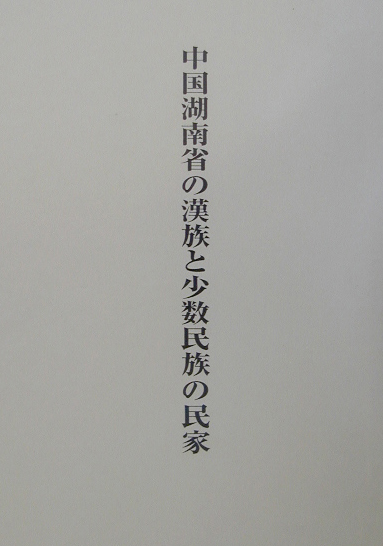 中国湖南省の漢族と少数民族の民家